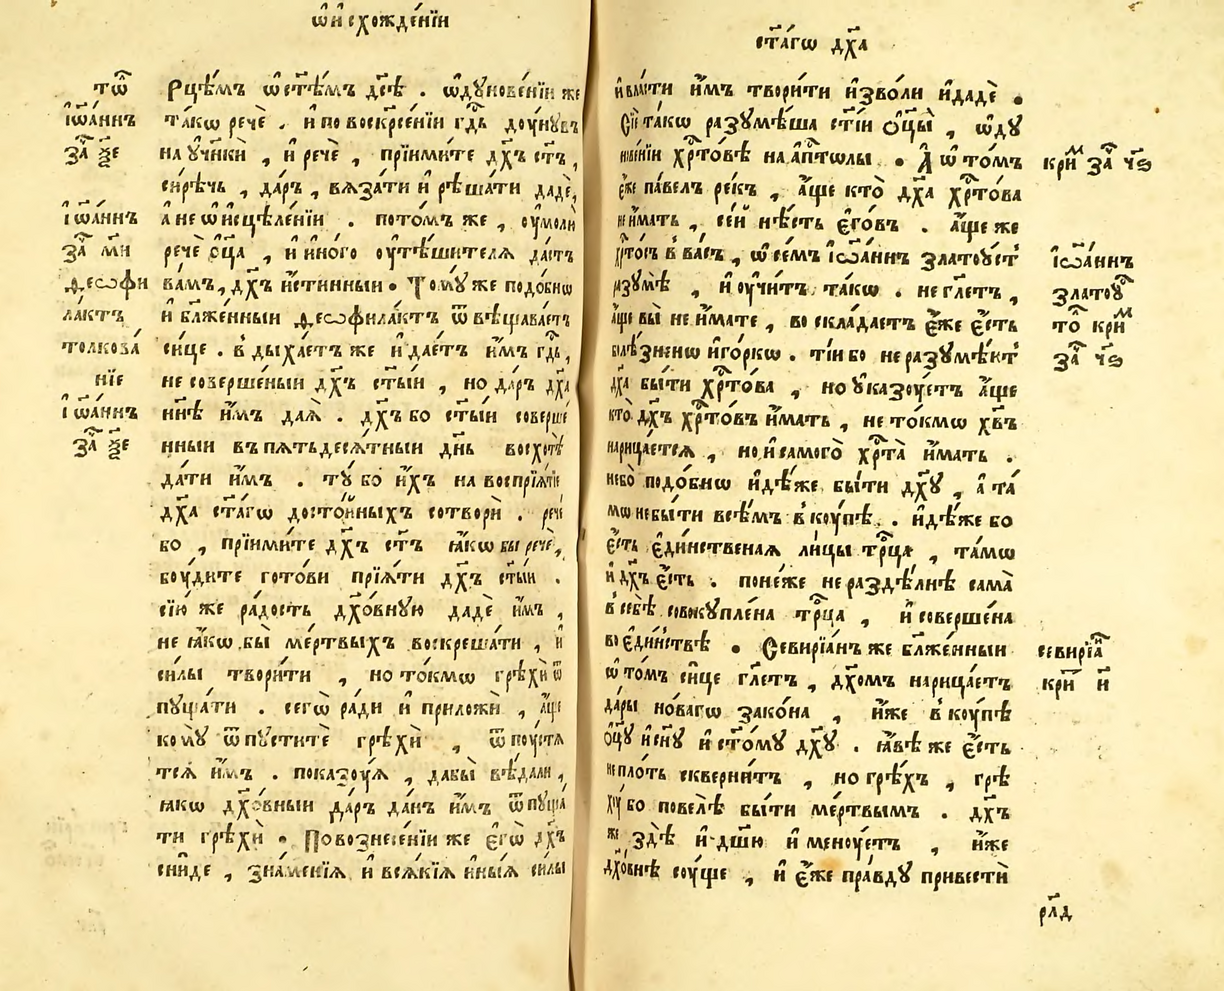 ѡ҆ и҆схожде́нїи
то̑
і҆ѡа́ннъ
за҄ ѯ҃е
і҆ѡа́ннъ
за҄ м҃и
ѳеѡфи
ла́ктъ
толкова́
нїе
і҆ѡа́ннъ
за҄ ѯ҃е
Рцѣ́мъ ѡ҆ ст҃ѣ́мъ дс҃ѣ . ѡ҆дꙋнове́нїи же
та́кѡ речѐ . и҆ по воскр҃се́нїи гдⷭ҇ь доу́нꙋвъ
на ᲂу҆ч҃нкѝ , и҆ речѐ , прїими́те дх҃ъ ст҃ъ ,
си́рѣчь , да́ръ , вѧза́ти и҆ рѣша́ти дадѐ ,
а҆ не ѡ҆ и҆сцѣле́нїи . пото́мъ же , оу҆молю̀
речѐ ѻ҆ц҃а , и҆ и҆но́го оу҆тѣ́шителѧ да́стъ
ва́мъ , дх҃ъ и҆́стинныи . Томꙋ́ же подо́бнѡ
и҆ бл҃же́нныи ѳеѡфила́ктъ ѿвѣщава́етъ
си́це . вдыха́етъ же и҆ дае́тъ и҆̀мъ гдⷭ҇ь ,
не соверше́ныи дх҃ъ ст҃ы́и , но да́ръ дх҃а
нн҃ѣ и҆̀мъ даѧ̀ . дх҃ъ бо ст҃ы́и соверше́
нныи въ пѧтьдесѧ́тныи дн҃ь восхотѣ̀
да́ти и҆̀мъ . тꙋ́ бо и҆́хъ на воспрїѧ́тїе
дх҃а ст҃а́гѡ досто́йныхъ сотворѝ . рече́
бо , прїими́те дх҃ъ ст҃ъ ꙗ҆́кѡ бы речѐ ,
боу́дите гото́ви прїѧ́ти дх҃ъ ст҃ы́и .
сїю́ же ра́дость дх҃о́внꙋю дадѐ и҆̀мъ ,
не ꙗ҆́кѡ бы̀ ме́ртвыхъ воскреша́ти , и҆
си́лы твори́ти , но то́кмѡ грѣхѝ ѿ
пꙋща́ти . сегѡ̀ ра́ди и҆ приложѝ , а҆́ще
комꙋ̀ ѿпꙋститѐ грѣхѝ , ѿпоу́стѧ
тсѧ и҆̀мъ . показоу́ѧ , дабы̀ вѣ́дали ,
ꙗ҆́кѡ дх҃о́вныи да́ръ да́нъ и҆̀мъ ѿпꙋща́
ти грѣхѝ . По вознесе́нїи же є҆гѡ̀ дх҃ъ
сни́де , зна́менїѧ и҆ всѧ́кїѧ и҆ны́ѧ си́лы
ст҃а́гѡ дх҃а
и҆ вла́сти и҆̀мъ твори́ти и҆зво́ли и҆ дадѐ .
Сїѐ та́кѡ разꙋмѣ́ша ст҃і́и ѻ҆ц҃ы̀ , ѡ҆дꙋ
нове́нїи хрⷭ҇то́вѣ на а҆пⷭ҇толы . А ѡ҆ то́мъ
є҆́же па́велъ ре́къ , а҆́ще кто̀ дх҃а хрⷭ҇то́ва
не и҆́мать , се́й нѣ́сть є҆го́въ . а҆́ще же
хрⷭ҇то́съ в ва́съ , ѡ҆ се́мъ і҆ѡа́ннъ златоу́ст
разꙋмѣ̀ , и҆ оу҆чи́тъ та́кѡ . не гл҃етъ ,
а҆́ще вы̀ не и҆́мате , но склада́етъ є҆́же є҆́сть
болѣ́зненѡ и҆ го́ркѡ . ті́и бо не разꙋмѣ́ют
дх҃а бы́ти хрⷭ҇то́ва , но ᲂу҆казоу́етъ а҆́ще
кто̀ дх҃ъ хрⷭ҇то́въ и҆́мать , не то́кмѡ хв҃ъ
нарица́етсѧ , но и҆ самого̀ хрⷭ҇та̀ и҆́мать .
небо̀ подо́бнѡ и҆дѣ́же бы́ти дх҃ꙋ , а҆ та́
мѡ не бы́ти всѣ́мъ вкоу́пѣ . и҆дѣ́же бо
є҆́сть є҆ди́нственаѧ лицы̀ трⷪ҇ца , та́мѡ
и҆ дх҃ъ є҆́сть . поне́же нераздѣ́лнѣ сама̀
в себѣ̀ совокꙋпле́на трⷪ҇ца , и҆ соверше́на
во є҆ди́нствѣ . Севирїа́нъ же бл҃же́нныи
ѡ҆ то́мъ си́це гл҃етъ , дх҃омъ нарица́етъ
да́ры но́вагѡ зако́на , и҆́же вкоу́пѣ
ѻ҆ц҃ꙋ и҆ сн҃ꙋ и҆ ст҃о́мꙋ дх҃ꙋ . ꙗ҆́вѣ же є҆́сть
не пло́ть скверни́тъ , но грѣ́хъ , грѣ
хꙋ́ бо повелѣ̀ бы́ти ме́ртвымъ . дх҃ъ
же здѣ̀ и҆ дш҃ю и҆меноу́етъ , и҆́же
дх҃о́внѣ соу́ще , и҆ є҆́же пра́вдꙋ привестѝ
криⷨ за҄ ч҃ѕ
і҆ѡа́ннъ
златоу҄
то̑ криⷨ
за҄ ч҃ѕ
севирїаⷩ҇
кри҃ и҃
рл҃д